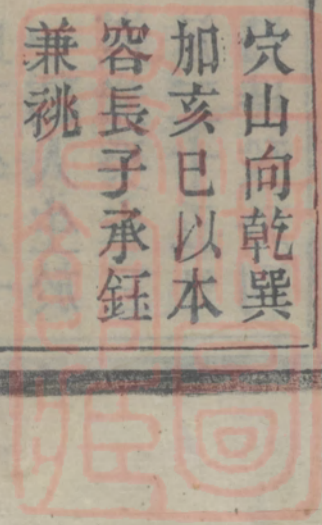 穴山向乾巽
加亥巳以本
容長子承鈺
兼祧